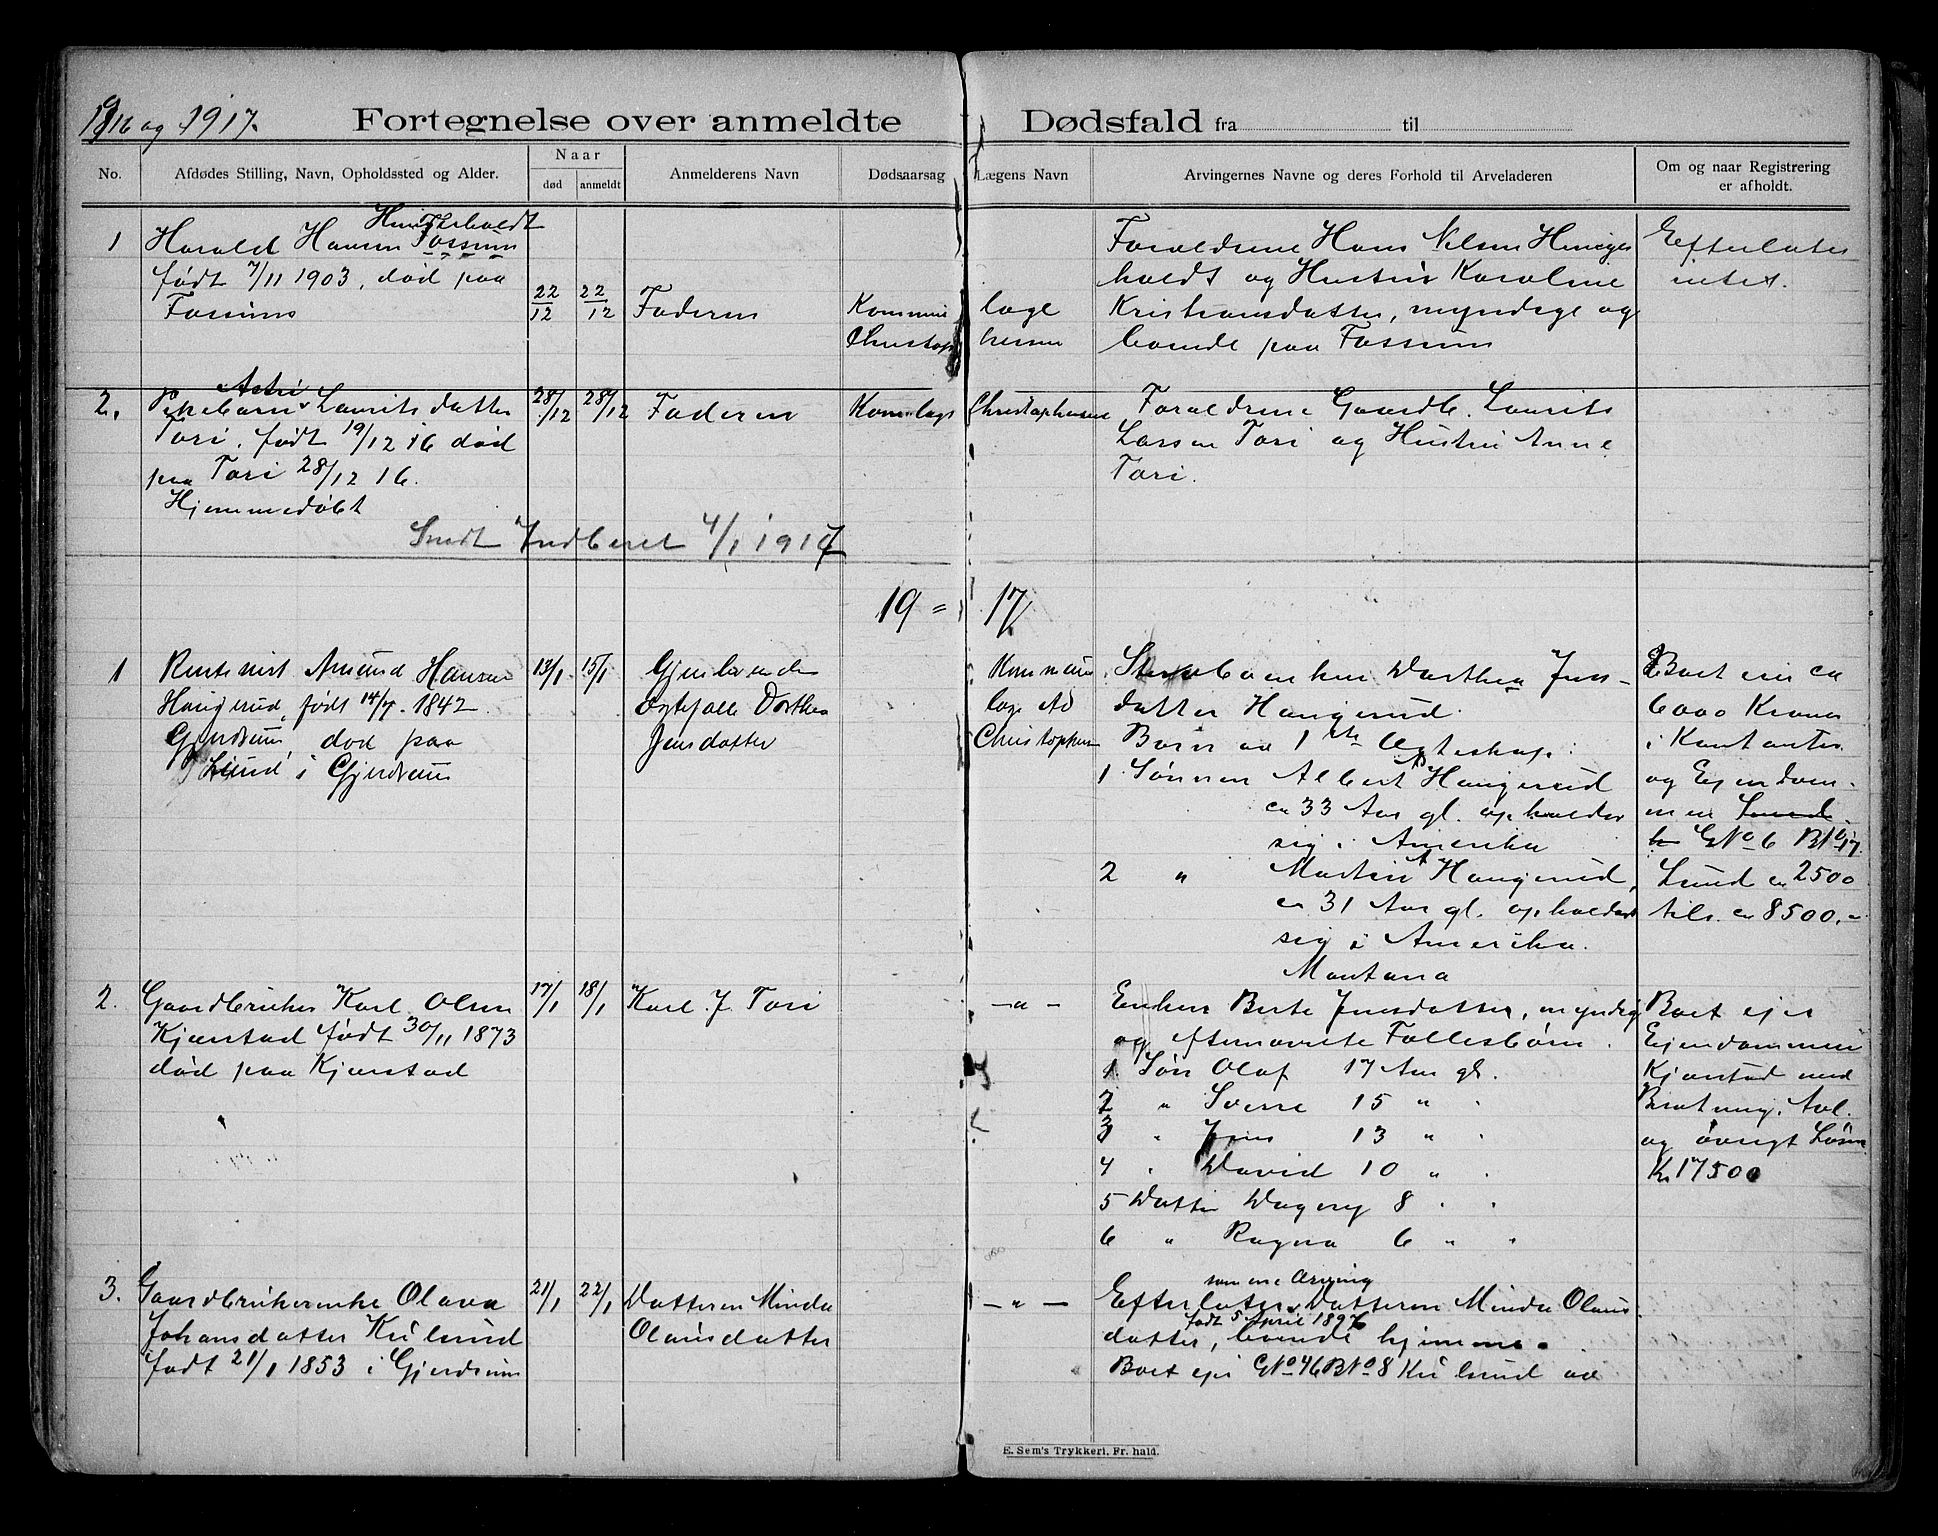 1916 og 1917.
Fortegnelse over anmeldte Dødsfald fra til
No.
Afdødes Stilling, Navn, Opholdssted og Alder.
Naar
død
anmeldt
Anmelderens Navn
Dødsaarsag
Lægens Navn
Arvingernes Navne og deres Forhold til Arveladeren
Om og naar Registrering
er afholdt.
1
Harald Hansen Fossum
født 7/11 1903, død paa
Fossum
22/12
22/12
Faderen
Kommune
Christop
læge
hersen
Forældrene Hans Nilsen
holdt og Hustru Karoline
Kristiansdatter, myndige og
boende paa Fossum
Efterlater
intet.
2.
Astri
Pikebarn Lauritsdatter
Tori, født 19/12 16 død
paa Tori 28/12 16.
Hjemmedøbt
28/12
28/12
Faderen
Christophersen
Forældrene Gaardb. Laurits
Larsen Tori og Hustru Anne
Tori.
Sendt Indberet 4/1 1917
19 = 17
1
Rentenist Amund Hansen
Haugerud, født 14/7. 1842
Gjerdrum, død paa
Lund i Gjerdrum
13/1
15/1
Gjenlevende
Ægtefælle Dorthea
Jensdatter
Kommune
læge Ad
Christophersen
Dorthea Jens-
datter Haugerud.
Børn av 1ste Ægteskap:
1. Sønnen Albert A Haugerud
ca 33 Aar gl. opholder
sig i Amerika
2 " Martin A Haugerud,
ca 31 Aar gl. opholder
sig i Amerika.
Montana
Boet eier ca
6000 Kroner
i Kontanter
og Eiendom-
men Lund
GNo 6 BNo 17
Lund ca 2500
tils. ca 8500.-
2.
Gaardbruker Karl Olsen
Kjærstad født 30/11 1873
død paa Kjærstad
17/1
18/1
Karl J. Tori
— " —
Enken Berte Jensdatter, myndig
og efternævnte Fællesbørn.
1. Søn Olaf 17 Aar gl.
2 " Sverre 15 " "
3 " Jens 13 " "
4 " David 10 " "
5 Datter Dagny 8 " "
6 " Ragna 6 " "
Boet ejer
Ejendommen
Kjærstad med
Besætning, Avl.
og øvrigt Løsøre
Kr 17500
3.
Gaardbrukerenke Olava
Johansdatter Kulsrud
født 21/1 1853 i Gjerdrum
21/1
22/1
Datteren Minda
Olausdatter
— " —
som ene Arving
Efterlater Datteren Minda Olaus
født 5 April 1896
datter, boende hjemme.
Boet ejer GNo 46 BNo 8 Kulsrud av
E. Sem's Trykkeri, Fr. hald.